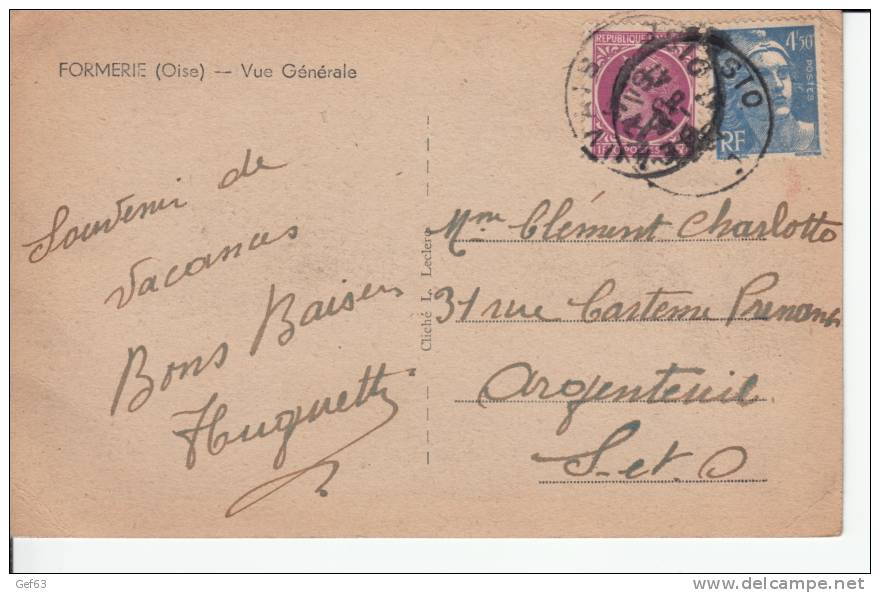 FORMERIE (Oise) — Vue Générale
Souvenir de
vacances
Bons Baisers
Huguette
Cliché L. Leclerc
REPUBLIQUE
4f50
POSTES
RF
Mme Clément Charlotte
31 rue
Argenteuil
S. et O
Gef63
delcampe.net